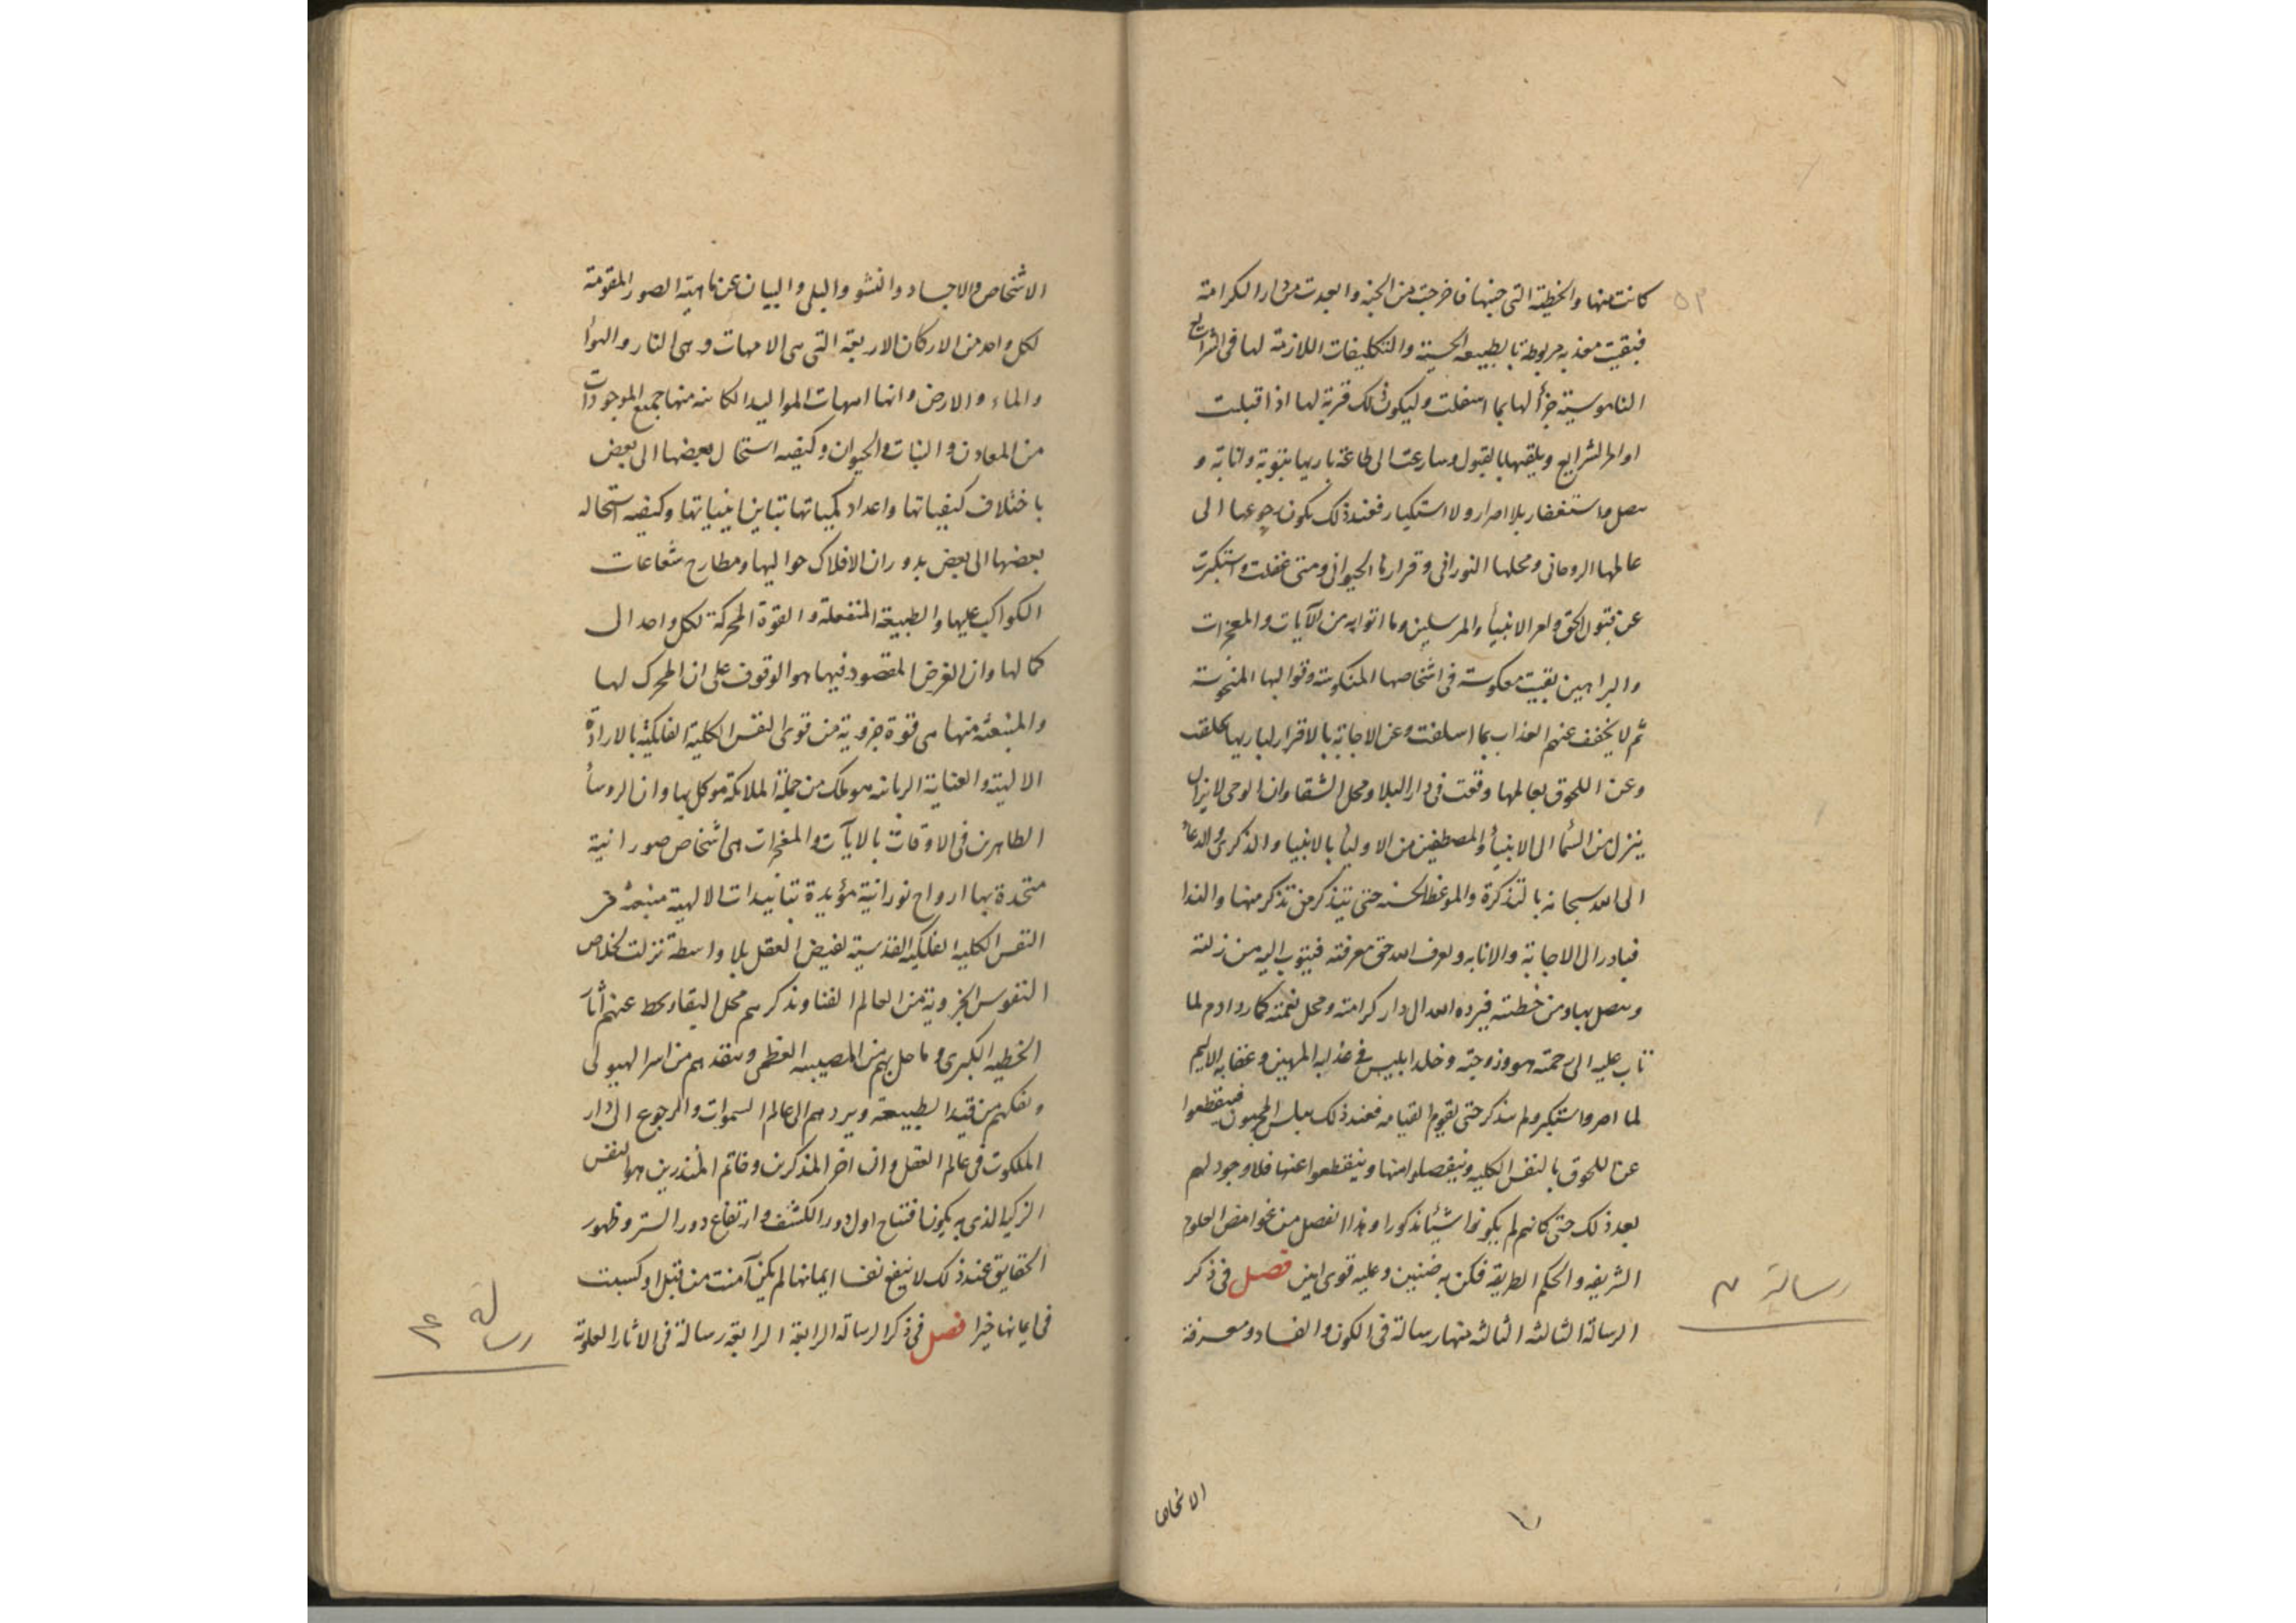 كانت منها والخطية التى جنتها فاخرجت من الجنة وابعدت من دار الكرامة
فبقيت معذبه مربوطة بالطبيعه الحسية والتكليفات اللازمة لها فى الشرايع
الناموسية جزأ لها بما اسفلت وليكون ذلك قربة لها اذا قبلت
اوامر الشرايع وتلقيها بالقبول وسارعت الى طاعة باريها بتوبة وانابة و
واستغفار بلا اصرار ولا استكبار فعند ذلك يكون رجوعها الى
عالمها الروحانى ومحلها النورانى وقرارها الحيوانى ومتى غفلت واستكبرت
عن قبول الحق وامر الانبيأ والمرسلين وما اتوا به من الآيات والمعجزات
والبراهين بقيت معكوسة فى اشخاصها المنكوسة وقوالبها المنحوسة
ثم لا يخفف عنهم العذاب بما اسلفت وعن الاجابة بالاقرار لباريها تخلفت
وعن اللحوق بعالمها وقعت فى دار البلا ومحل الشقا وان الوحى لا يزال
ينزل من السمأ الى الانبيأ والمصطفين من الاوليأ بالانبيا والذكرى والدعأ
الى الله سبحانه بالتذكرة والموعظة الحسنه حتى يتذكر من تذكر منها والندا
فبادر الى الاجابة والانابه وعرف الله حق معرفته فيتوب اليه من زلته
ويتصل بها ومن خطيته فيرده الله الى دار كرامته ومحل نعمته كما رد ادم لما
تاب عليه الى رحمته هو وزوجته وخلد ابليس فى عذابه المهين وعقابه الاليم
لما اصر واستكبر ولم يتذكر حتى يقوم القيامه فعند ذلك يبلس المجرمون فينقطعوا
عن اللحوق بالنفس الكليه وينفصلوا منها وينقطعوا عنها فلا وجود لهم
بعد ذلك حتى كانهم لم يكونوا شيئا مذكورا وهذا الفصل من غوامض العلوم
الشريفه والحكم الطريقه فكن به ضنين وعليه قوى امين فصل فى ذكر
الرسالة الثالثه الثالثه منها رسالة فى الكون والفساد ومعرفة
رسالة ٣
٥٣
الاشخاص
الاشخاص والاجساد والنشو والبلى والبيان عن ماهية الصور المقومة
لكل واحد من الاركان الاربعة التى هى الامهات وهى النار والهوأ
والماء والارض وانها امهات المواليد الكائنه منها جميع الموجودات
من المعادن والنبات والحيوان وكيفيه استحال بعضها الى بعض
باختلاف كيفياتها واعداد كمياتها تباين اينياتها وكيفيه استحاله
بعضها الى بعض بدوران الافلاك حواليها ومطارح شعاعات
الكواكب عليها والطبيعة المنفعلة والقوة المحركة لكل واحد الى
كمالها وان الغرض المقصود فيها هو الوقوف على ان المحرك لها
والمنبعثه منها هى قوة جزوية من قوى النفس الكلية الفلكية بالارادة
الالهية والعناية الربانيه هو ملك من جملة الملائكة موكل بها وان الروسأ
الطاهرين فى الاوقات بالايآت والمعجزات هى اشخاص صورانية
متحدة بها ارواح نورانية مؤيدة بتأييدات الالهية منبعثة من
النفس الكليه الفلكيه القدسية لفيض العقل بلا واسطة نزلت لخلاص
النفوس الجزوية من العالم الفنا وتذكرهم محل البقا وتحط عنهم آثار
الخطيه الكبرى وما حل بهم من المصيبه العظمى وتنقذهم من اسر الهيولى
وتفكهم من قيد الطبيعة ويردهم الى عالم السموات والرجوع الى دار
الملكوت فى عالم العقل وان اخر المذكرين وخاتم المنذرين هو النفس
الزكية الذى به يكون افتتاح اول دور الكشف وارتفاع دور الستر وظهور
الحقايق عند ذلك لا ينفع نفسا ايمانها لم يكن آمنت من قبل او كسبت
فى ايمانها خيرا فصل فى ذكر الرسالة الرابعة الرابعة رسالة فى الاثار العلوية
رسالة